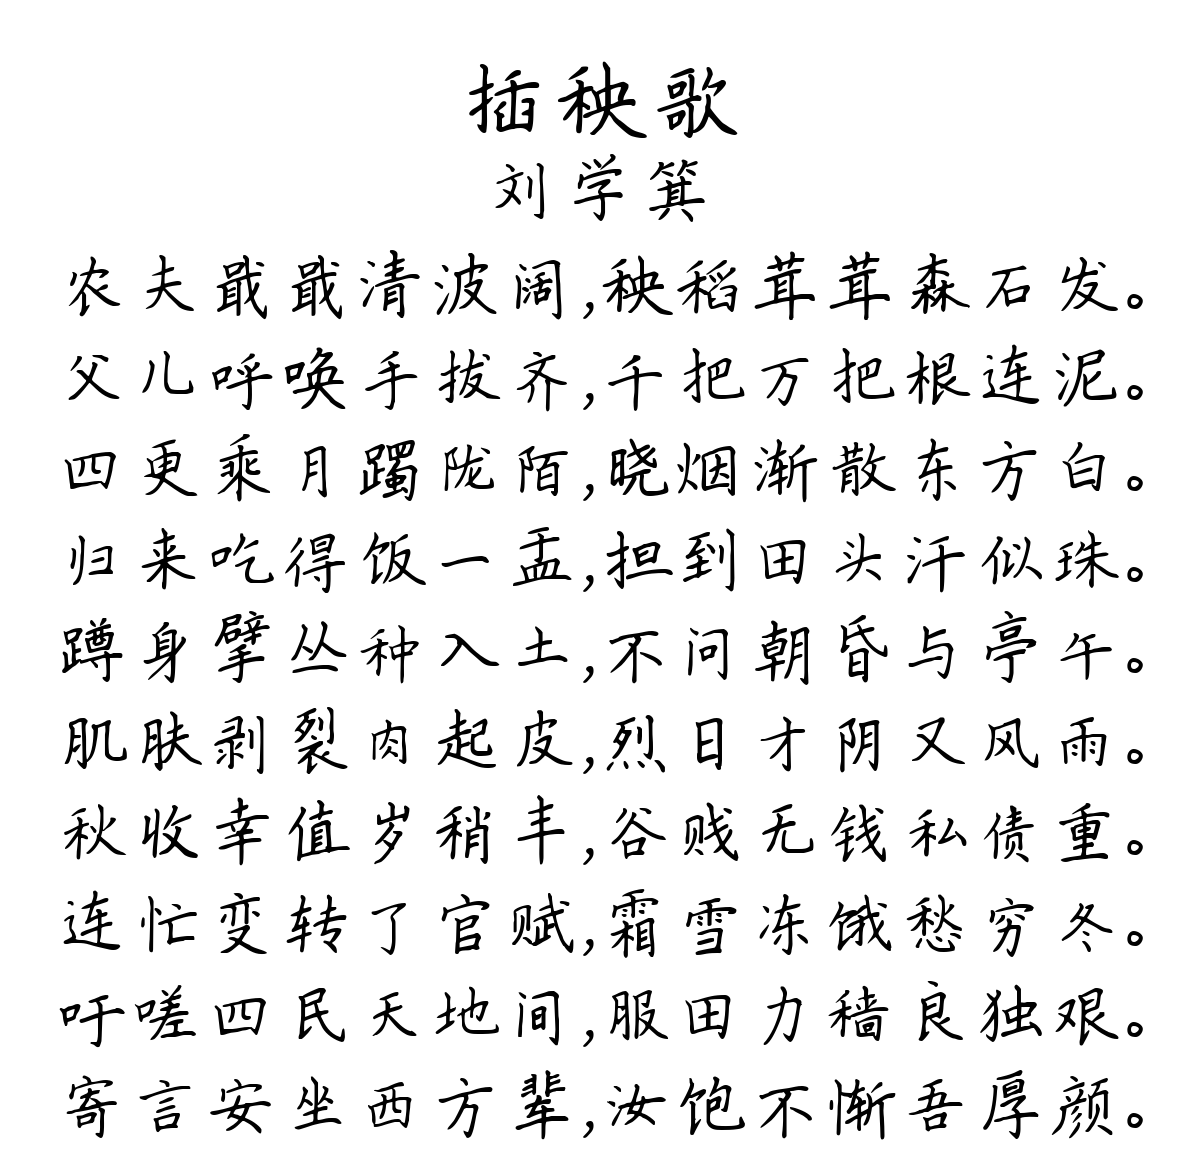 插秧歌
刘学箕
农夫戢戢清波阔,秧稻茸茸森石发。
父儿呼唤手拔齐,千把万把根连泥。
四更乘月躅陇陌,晓烟渐散东方白。
归来吃得饭一盂,担到田头汗似珠。
蹲身擘丛种入土,不问朝昏与亭午。
肌肤剥裂肉起皮,烈日才阴又风雨。
秋收幸值岁稍丰,谷贱无钱私债重。
连忙变转了官赋,霜雪冻饿愁穷冬。
吁嗟四民天地间,服田力穑良独艰。
寄言安坐西方辈,汝饱不惭吾厚颜。